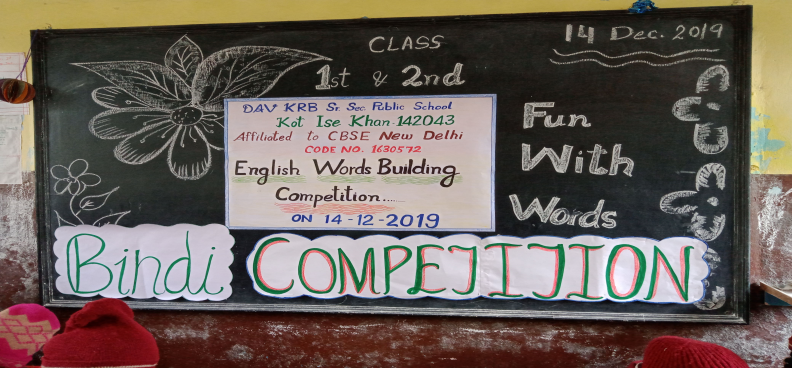 14 Dec. 2019
CLASS
1st & 2nd
DAV KRB Sr. Sec. Public School
Kot Ise Khan-142043
Affiliated to CBSE New Delhi
CODE NO. 1630572
English Words Building
Competition......
ON 14-12-2019
Fun
With
Words
Bindi COMPETITION